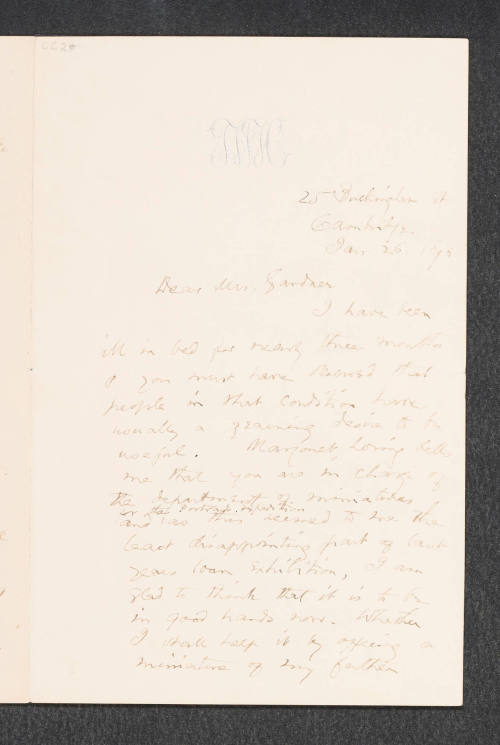 25 Buckingham St
Cambridge.
Jan 26.
Dear Mrs. Gardner
I have been
ill in bed for nearly three months
& you must have observed that
people in that condition have
usually a yearning desire to be
useful. Margaret Loring tells
me that you are in charge of
the department of miniatures
of the Portrait exposition
and as this seemed to me the
least disappointing part of last
years loan exhibition, I am
glad to think that it is to be
in good hands now. Whether
I shall help it by offering a
miniature of my father